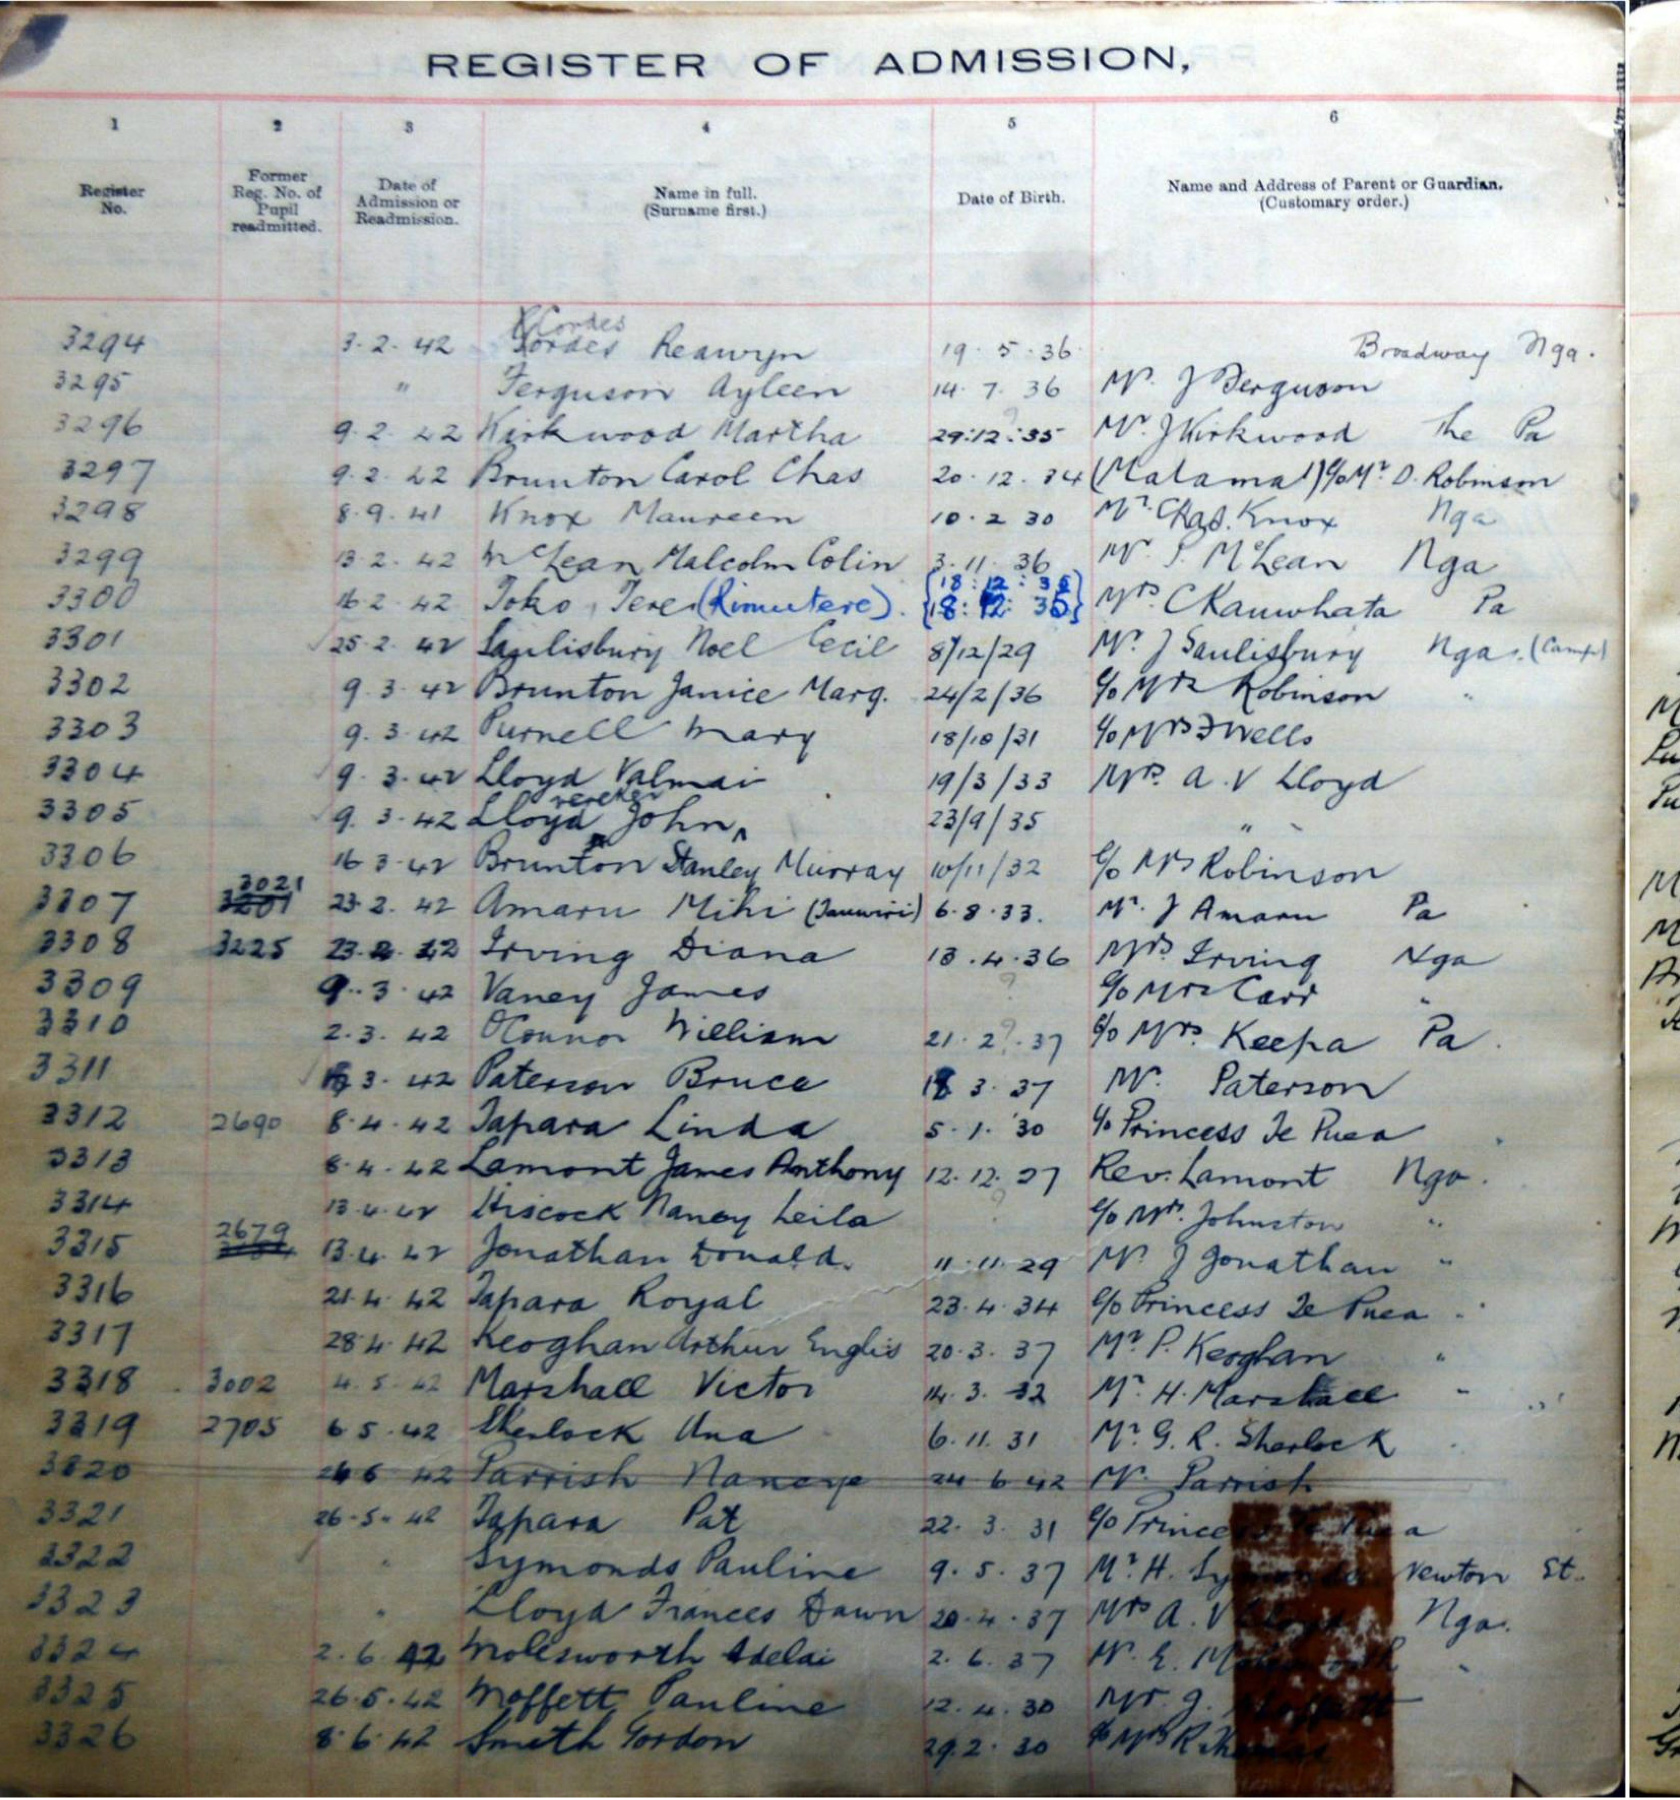 REGISTER OF ADMISSION,
1 2 3 4 5 6
Register No. Former Reg. No. of Pupil readmitted. Date of Admission or Readmission. Name in full. (Surname first.) Date of Birth. Name and Address of Parent or Guardian. (Customary order.)
Cordes
3294 3.2.42 Reawyn 19.5.36 Broadway Nga.
3295 " Ferguson Ayleen 14.7.36 Mr. J Ferguson
3296 9.2.42 Kirkwood Martha 29:12:35 ? Mr. J Kirkwood The Pa
3297 9.2.42 Brunton Carol Chas 20.12.34 (Matamal) c/o Mr. D. Robinson
3298 8.9.41 Knox Maureen 10.2 30 Mr. Chas. Knox Nga
3299 13.2.42 McLean Malcolm Colin 3.11.36 Mr. McLean Nga
18:12:35
3300 16.2.42 Toko, Tere (Rimutere). 18:12:35 Mrs. C Kauwhata Pa
3301 25.2.42 Saulisbury Noel Cecil 8/12/29 Mr. J Saulisbury Nga. (Camp)
3302 9.3.42 Brunton Janice Marg. 24/2/36 c/o Mrs Robinson "
3303 9.3.42 Purnell Mary 18/10/31 c/o Mrs F Wells
3304 9.3.42 Lloyd Valmai 19/3/33 Mrs. A. V Lloyd
vereker
3305 9.3.42 Lloyd John 23/9/35 "
3306 16 3.42 Brunton Stanley Murray 10/11/32 c/o Mrs Robinson
3021
3307 3201 23.2.42 Amaru Mihi (Tauwiri) 6.8.33. Mr. J Amaru Pa
3308 3225 23.2.42 Irving Diana 13.4.36 Mrs. Irving Nga
3309 9.3.42 Vaney James ? c/o Mrs Carr "
3310 2.3.42 O'Connor William 21.2?.37 c/o Mrs. Keepa Pa.
3311 3.42 Paterson Bruce 18 3.37 Mr. Paterson
3312 2690 8.4.42 Tapara Linda 5.1.30 c/o Princess Te Puea
3313 8.4.42 Lamont James Anthony 12.12.27 Rev. Lamont Nga.
3314 13.4.42 Hiscock Nancy Leila ? c/o Mrs. Johnston "
2679
3315 13.4.42 Jonathan Donald. 11.11.29 Mr. J Jonathan "
3316 21.4.42 Tapara Royal 23.4.34 c/o Princess Te Puea "
3317 28.4.42 Keoghan Arthur Englis 20.3.37 Mr. P. Keoghan "
3318 3002 4.5.42 Marshall Victor 14.3.32 Mr. H. Marshall "
3319 2705 6 5.42 Sherlock Una 6.11.31 Mr. G. R. Sherlock
3320 24 6 42 Parrish Nancye 24 6 42 Mr. Parrish
3321 26.5.42 Tapara Pat 22.3.31 c/o Princess Te Puea
3322 " Symonds Pauline 9.5.37 Mr. H. Symonds Newton St.
3323 " Lloyd Frances Dawn 20.4.37 Mrs A. V Lloyd Nga.
3324 2.6.42 Molesworth Adelai 2.6.37 Mr. E. Molesworth "
3325 26.5.42 Moffett Pauline 12.4.30 Mr. J. Moffett
3326 8.6.42 Smith Gordon 29.2.30 c/o Mrs R Thomas